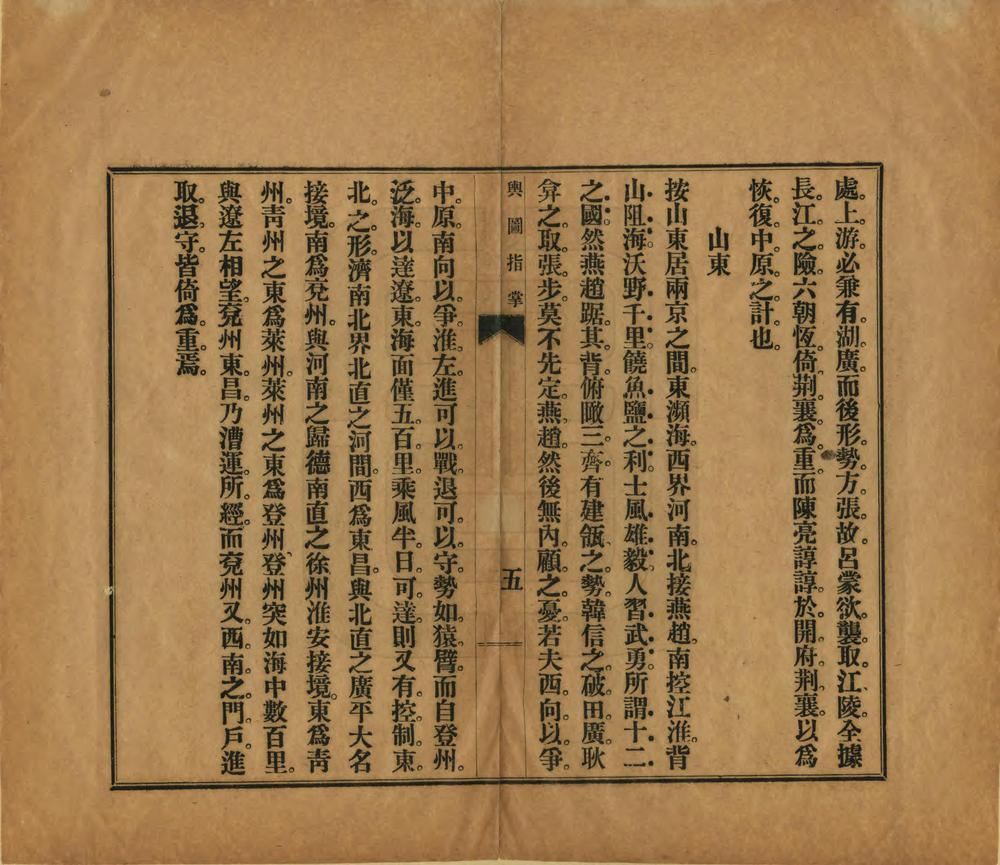 處上游必兼有湖廣而後形勢方張故呂蒙欲襲取江陵全據
長江之險六朝恆倚荆襄爲重而陳亮諄諄於開府荆襄以爲
恢復中原之計也
山東
按山東居兩京之間東瀕海西界河南北接燕趙南控江淮背
山阻海沃野千里饒魚鹽之利士風雄毅人習武勇所謂十二
之國然燕趙踞其背俯瞰三齊有建瓴之勢韓信之破田廣耿
弇之取張步莫不先定燕趙然後無內顧之憂若夫西向以爭
輿圖指掌
五
中原南向以爭淮左進可以戰退可以守勢如猿臂而自登州
泛海以達遼東海面僅五百里乘風半日可達則又有控制東
北之形濟南北界北直之河間西爲東昌與北直之廣平大名
接境南爲兗州與河南之歸德南直之徐州淮安接境東爲靑
州靑州之東爲萊州萊州之東爲登州登州突如海中數百里
與遼左相望兗州東昌乃漕運所經而兗州又西南之門戶進
取退守皆倚爲重焉